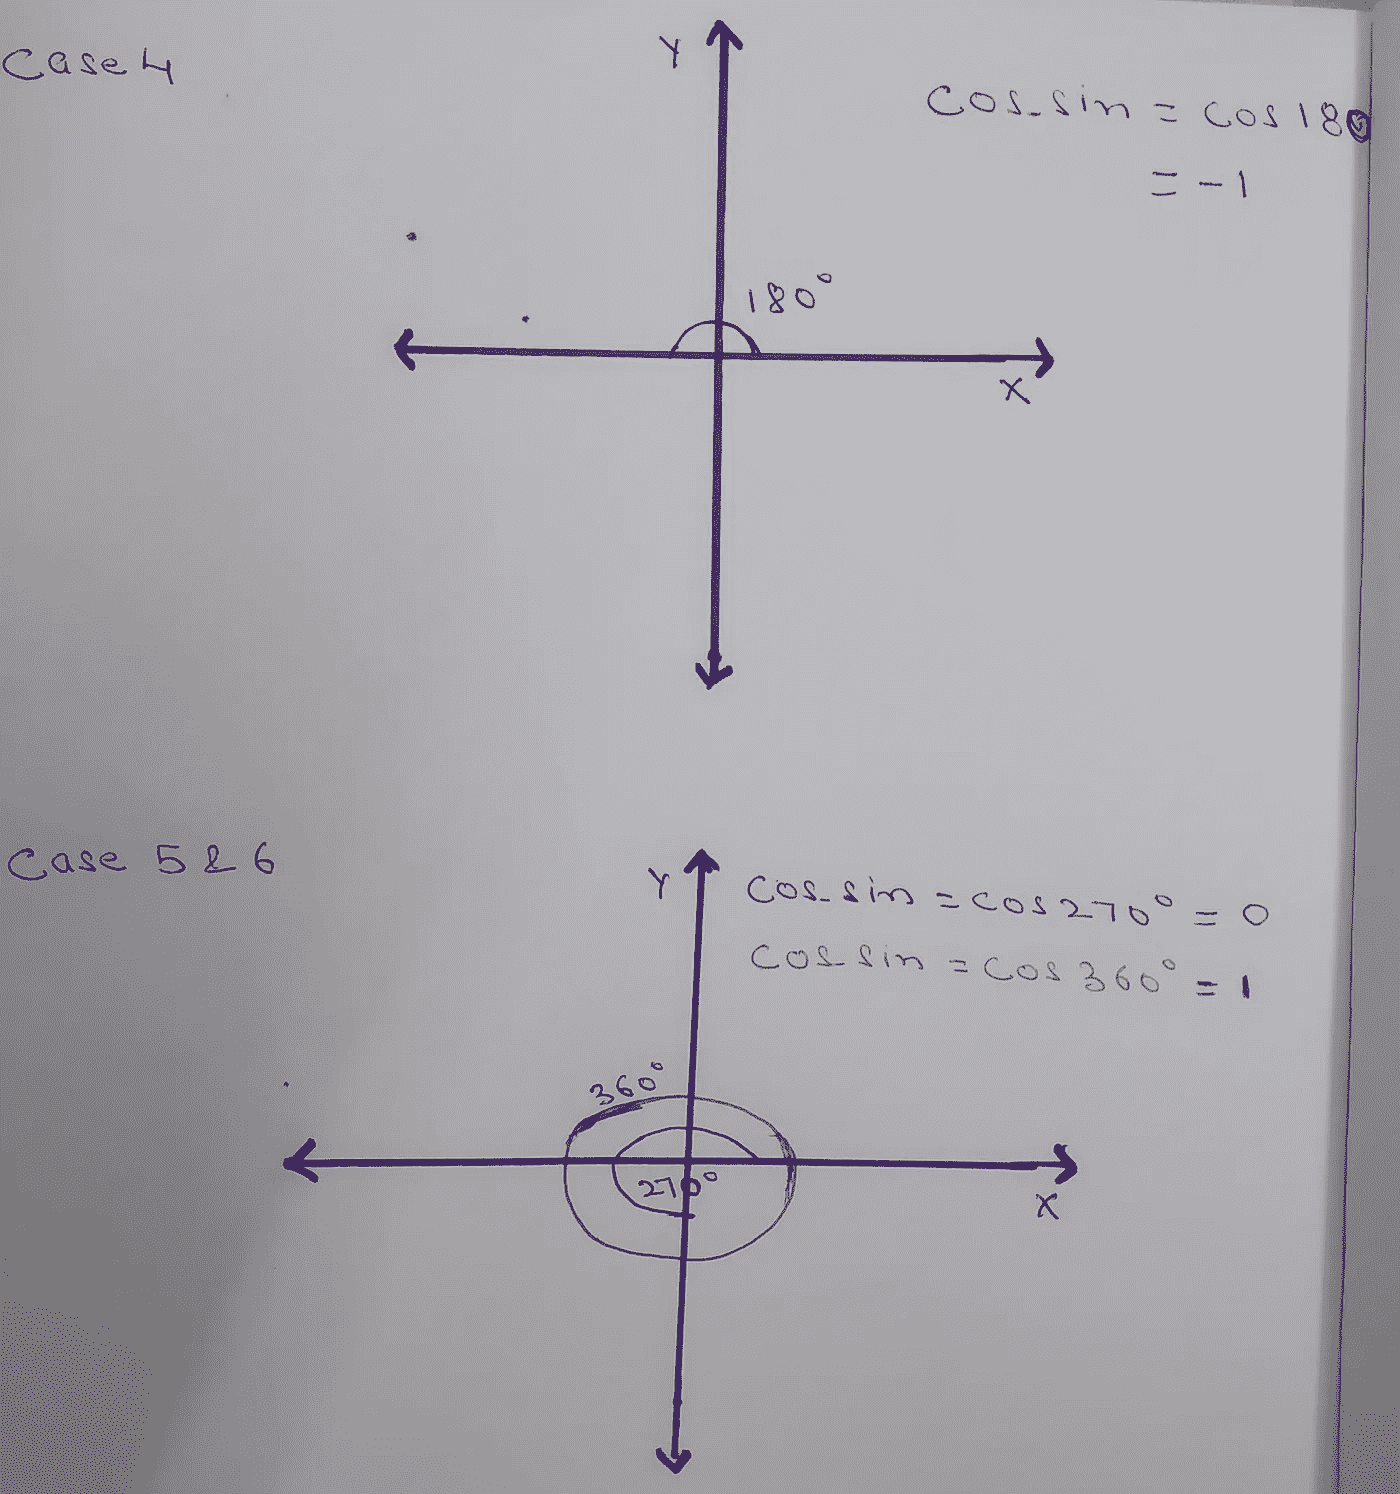 Case 4
Y
Cos-sin = Cos 180
= -1
180°
X
Case 5 & 6
Y
Cos-sin = Cos 270° = 0
Cos-sin = Cos 360° = 1
360°
270°
X